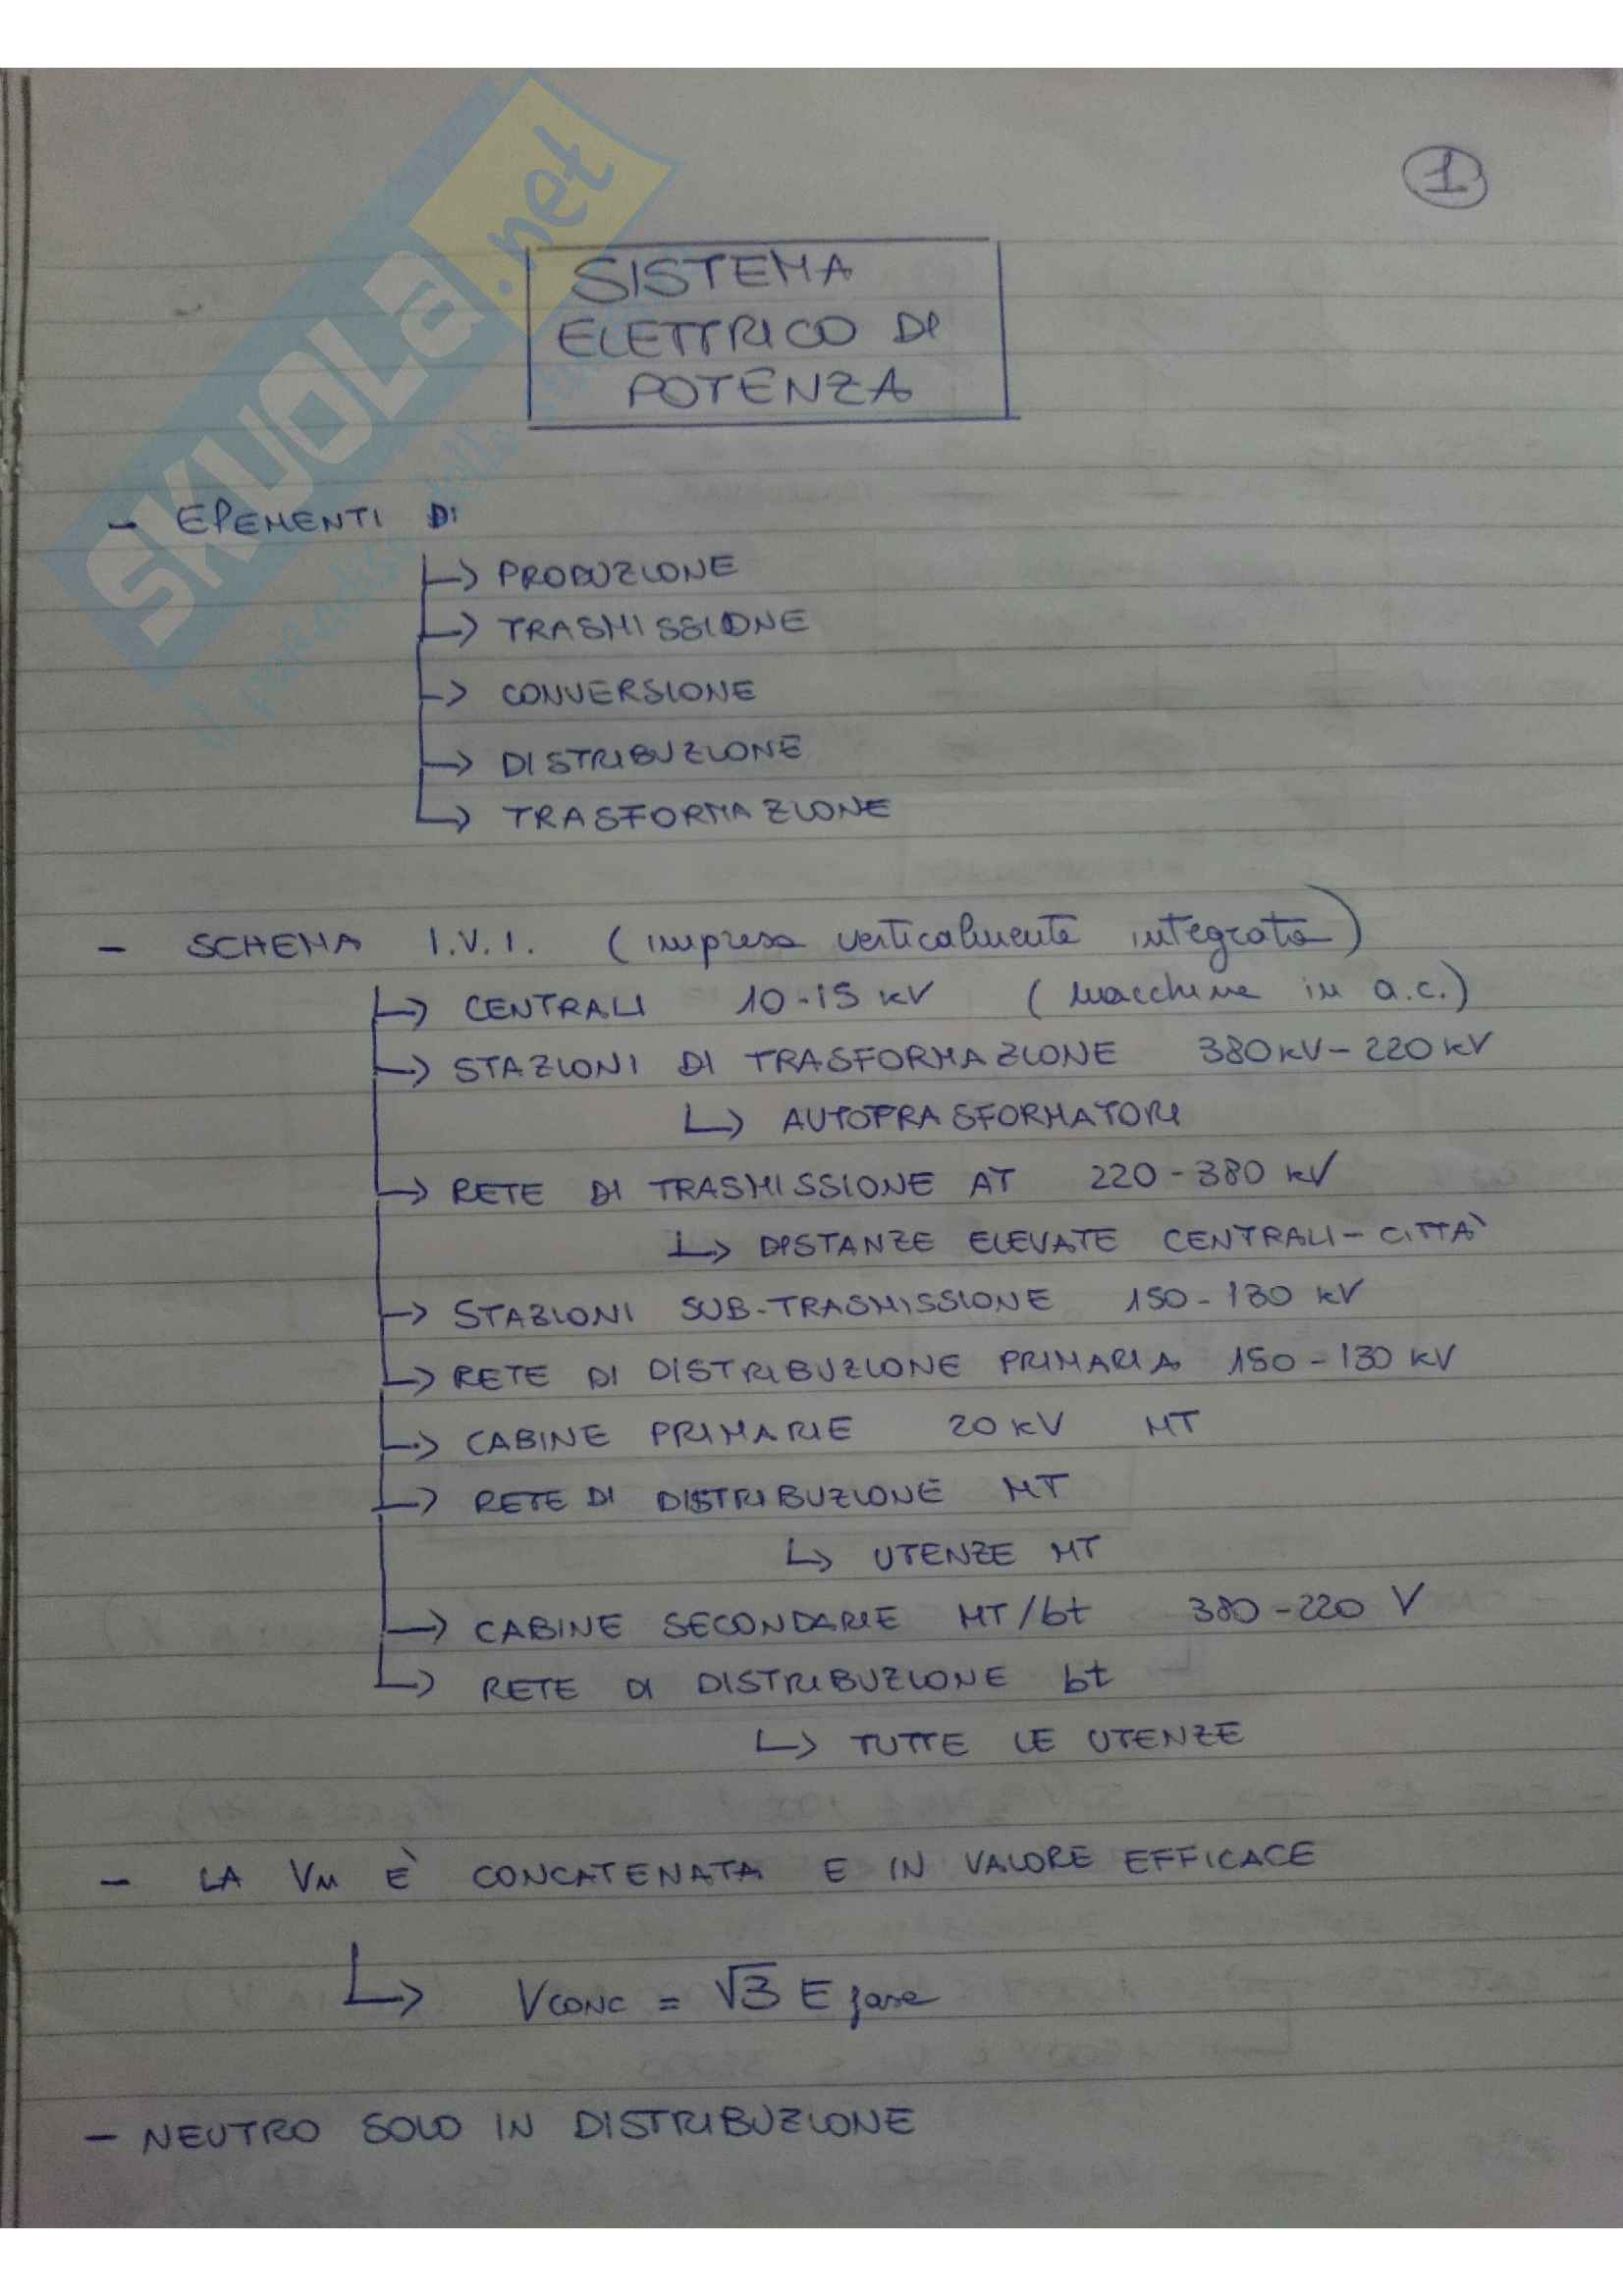 1
SISTEMA
ELETTRICO DI
POTENZA
- ELEMENTI DI
↳ PRODUZIONE
↳ TRASMISSIONE
↳ CONVERSIONE
↳ DISTRIBUZIONE
↳ TRASFORMAZIONE
- SCHEMA I.V.I. (impresa verticalmente integrata)
↳ CENTRALI 10-15 kV (macchine in a.c.)
↳ STAZIONI DI TRASFORMAZIONE 380kV-220kV
↳ AUTOTRASFORMATORI
↳ RETE DI TRASMISSIONE AT 220-380 kV
↳ DISTANZE ELEVATE CENTRALI-CITTÀ
↳ STAZIONI SUB-TRASMISSIONE 150-130 kV
↳ RETE DI DISTRIBUZIONE PRIMARIA 150-130 kV
↳ CABINE PRIMARIE 20 kV MT
↳ RETE DI DISTRIBUZIONE MT
↳ UTENZE MT
↳ CABINE SECONDARIE MT/bt 380-220 V
↳ RETE DI DISTRIBUZIONE bt
↳ TUTTE LE UTENZE
- LA Vn È CONCATENATA E IN VALORE EFFICACE
↳ Vconc = √3 E fase
- NEUTRO SOLO IN DISTRIBUZIONE
SKUOLA.net